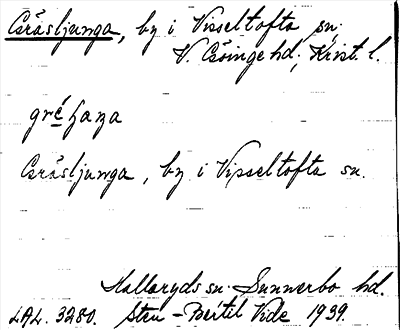 Gråsljunga, by i Visseltofta sn.
V. Göinge hd., Krist. l.
Gråsljunga, by i Visseltofta sn.
Hallaryds sn. Sunnerbo hd.
LAL. 3280. Sten-Bertil Vide 1939.